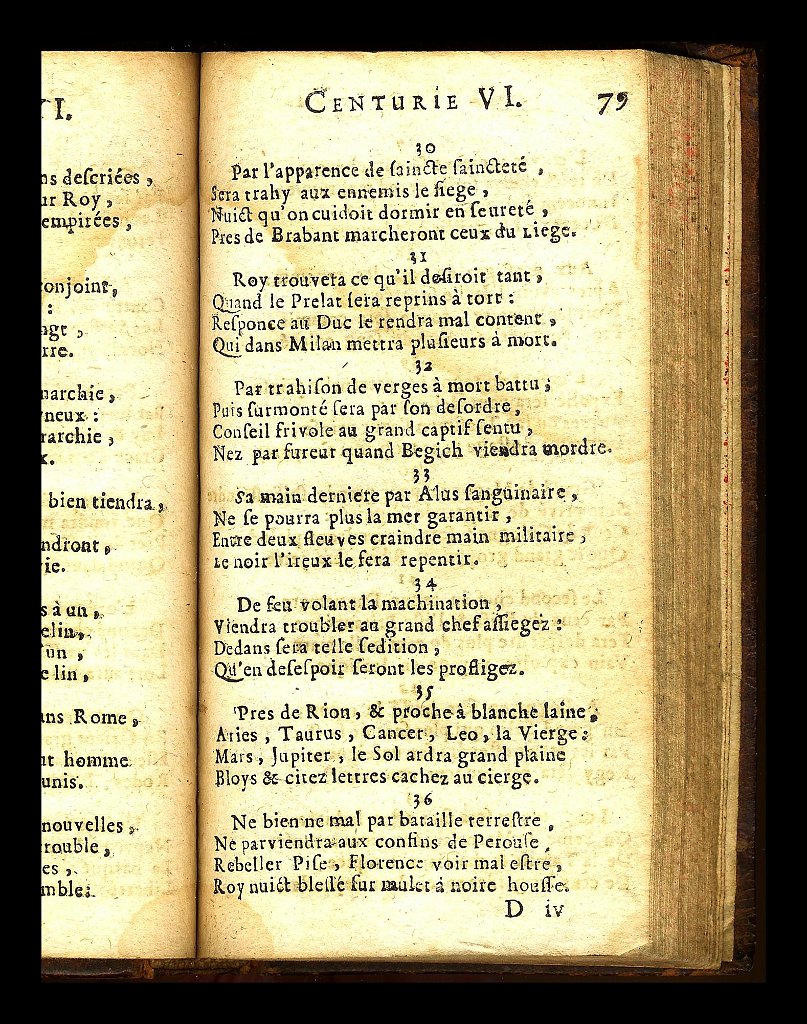 I.
ns deſcriées ,
ur Roy ,
empirées ,
onjoint ,
:
ngt ,
rre.
narchie ,
neux :
rarchie ,
x.
bien tiendra ,
ndront ,
ie.
s à un ,
elin ,
'un ,
e lin ,
ans Rome ,
nt homme
unis.
nouvelles ,
rouble ,
es ,
mble.
CENTURIE VI. 79
30
Par l'apparence de ſaincte ſaincteté ,
Sera trahy aux ennemis le ſiege ,
Nuict qu'on cuidoit dormir en ſeureté ,
Pres de Brabant marcheront ceux du Liege.
31
Roy trouvera ce qu'il deſiroit tant ,
Quand le Prelat ſera reprins à tort :
Reſponce au Duc le rendra mal content ,
Qui dans Milan mettra pluſieurs à mort.
32
Par trahiſon de verges à mort battu ;
Puis ſurmonté ſera par ſon deſordre ,
Conſeil frivole au grand captif ſentu ,
Nez par fureur quand Begich viendra mordre.
33
Sa main derniere par Alus ſanguinaire ,
Ne ſe pourra plus la mer garantir ,
Entre deux fleuves craindre main militaire ,
Le noir l'ireux le fera repentir.
34
De feu volant la machination ,
Viendra troubler au grand chef aſſiegez :
Dedans ſera telle ſedition ,
Qu'en deſeſpoir ſeront les profligez.
35
Pres de Rion , & proche à blanche laine ,
Aries , Taurus , Cancer , Leo , la Vierge :
Mars , Jupiter , le Sol ardra grand plaine
Bloys & citez lettres cachez au cierge.
36
Ne bien ne mal par bataille terreſtre ,
Ne parviendra aux confins de Perouſe ,
Rebeller Piſe , Florence voir mal eſtre ,
Roy nuict bleſſé ſur mulet à noire houſſe.
D iv